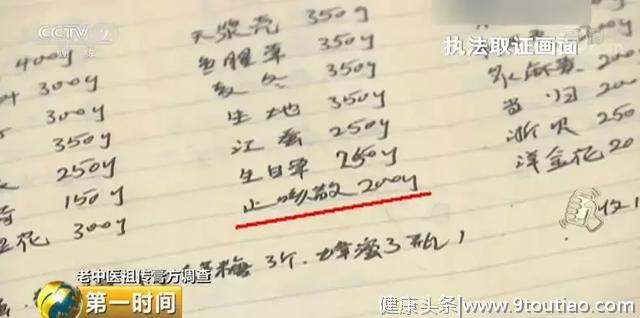 CCTV 2
财经
执法取证画面
天浆壳 350g
鱼腥草 350g
麦冬 350g
生地 350g
江蚕 250g
生白单 250g
止咳散 200g
400g
300g
300g
350g
250g
150g
花 300g
200
当归 200
浙贝 250
洋金花 20
糖 3个. 蜂蜜 3瓶
老中医祖传膏方调查
第一时间
健康头条/www.9toutiao.com